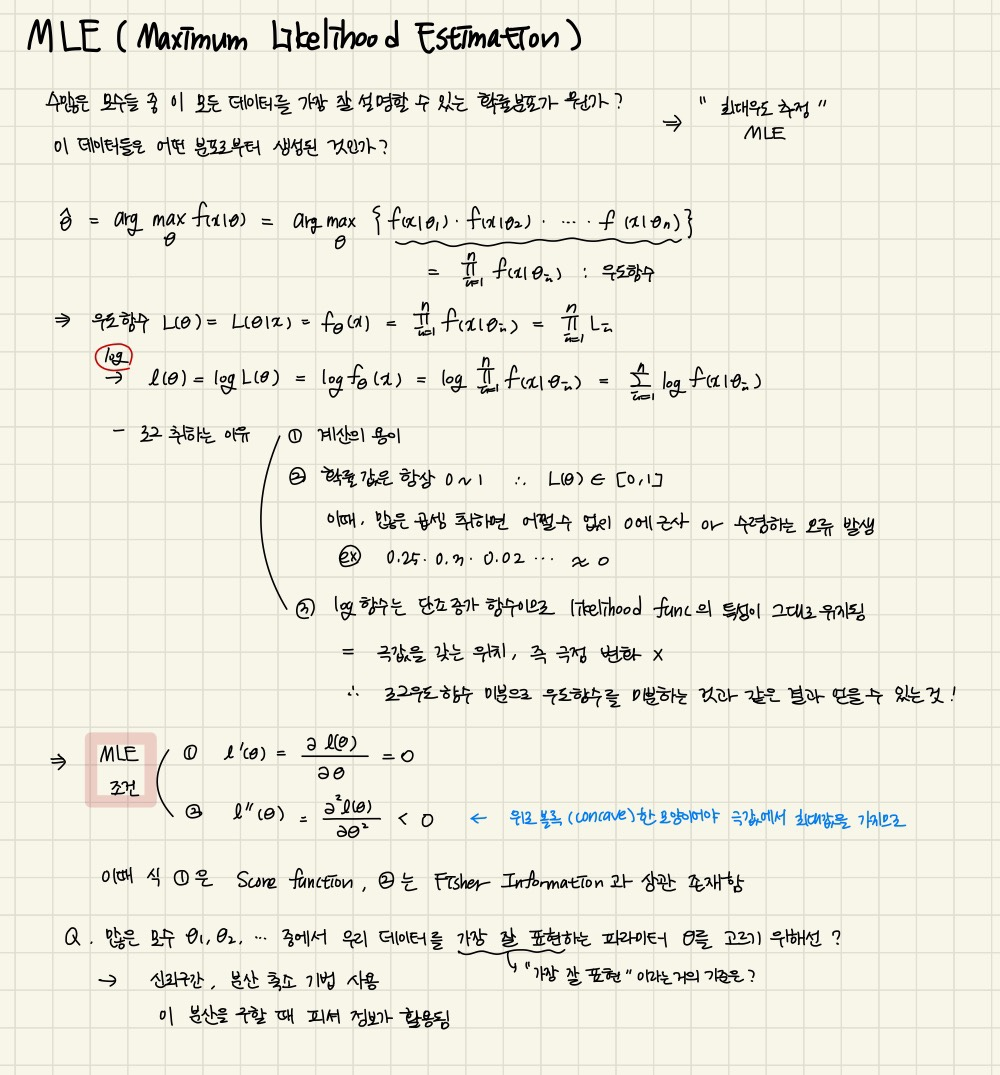 MLE ( Maximum Likelihood Estimation )
수많은 모수들 중 이 모든 데이터를 가장 잘 설명할 수 있는 확률분포가 뭔가?
이 데이터들은 어떤 분포로부터 생성된 것인가?
⇒ " 최대우도 추정 "
MLE
θ̂ = arg max_θ f(x|θ) = arg max_θ { f(x|θ₁) · f(x|θ₂) · ⋯ · f(x|θₙ) }
= ∏ⁿᵢ₌₁ f(x|θᵢ) : 우도함수
⇒ 우도함수 L(θ) = L(θ|x) = f_θ(x) = ∏ⁿᵢ₌₁ f(x|θᵢ) = ∏ⁿᵢ₌₁ Lᵢ
log
→ ℓ(θ) = log L(θ) = log f_θ(x) = log ∏ⁿᵢ₌₁ f(x|θᵢ) = ∑ⁿᵢ₌₁ log f(x|θᵢ)
- 로그 취하는 이유 ① 계산의 용이
② 확률 값은 항상 0 ~ 1 ∴ L(θ) ∈ [0,1]
이때, 많은 곱셈 취하면 어쩔수 없이 0에 근사 or 수렴하는 오류 발생
ex 0.25 · 0.3 · 0.02 ⋯ ≈ 0
③ log 함수는 단조증가 함수이므로 likelihood func의 특성이 그대로 유지됨
= 극값을 갖는 위치, 즉 극점 변화 x
∴ 로그우도함수 미분으로 우도함수를 미분하는 것과 같은 결과 얻을 수 있는 것!
⇒ MLE 조건
① ℓ′(θ) = ∂ℓ(θ)/∂θ = 0
② ℓ″(θ) = ∂²ℓ(θ)/∂θ² < 0 ← 위로 볼록(concave)한 모양이어야 극값에서 최대값을 가지므로
이때 식 ①은 Score function, ②는 Fisher Information과 상관 존재함
Q. 많은 모수 θ₁, θ₂, ⋯ 중에서 우리 데이터를 가장 잘 표현하는 파라미터 θ를 고르기 위해선?
↳ "가장 잘 표현"이라는거의 기준은?
→ 신뢰구간, 분산 축소 기법 사용
이 분산을 구할 때 피셔 정보가 활용됨